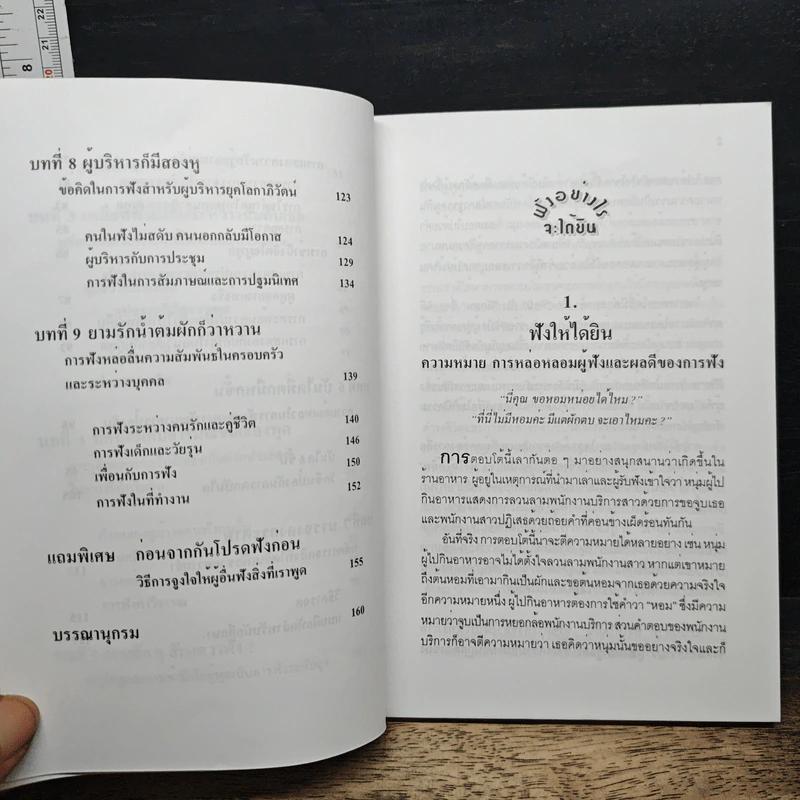 8
22
21
20
บทที่ 8 ผู้บริหารก็มีสองหู
ข้อคิดในการฟังสำหรับผู้บริหารยุคโลกาภิวัตน์ 123
คนในฟังไม่สดับ คนนอกกลับมีโอกาส 124
ผู้บริหารกับการประชุม 129
การฟังในการสัมภาษณ์และการปฐมนิเทศ 134
บทที่ 9 ยามรักน้ำต้มผักก็ว่าหวาน
การฟังหล่อลื่นความสัมพันธ์ในครอบครัว
และระหว่างบุคคล 139
การฟังระหว่างคนรักและคู่ชีวิต 140
การฟังเด็กและวัยรุ่น 146
เพื่อนกับการฟัง 150
การฟังในที่ทำงาน 152
แถมพิเศษ ก่อนจากกันโปรดฟังก่อน
วิธีการจูงใจให้ผู้อื่นฟังสิ่งที่เราพูด 155
บรรณานุกรม 160
ฟังอย่างไร
จะได้ยิน
1.
ฟังให้ได้ยิน
ความหมาย การหล่อหลอมผู้ฟังและผลดีของการฟัง
"นี่คุณ ขอหอมหน่อยได้ไหม?"
"ที่นี่ไม่มีหอมค่ะ มีแต่ผักตบ จะเอาไหมคะ?"
การตอบโต้นี้เล่ากันต่อ ๆ มาอย่างสนุกสนานว่าเกิดขึ้นใน
ร้านอาหาร ผู้อยู่ในเหตุการณ์ที่นำมาเล่าและผู้รับฟังเข้าใจว่า หนุ่มผู้ไป
กินอาหารแสดงการลวนลามพนักงานบริการสาวด้วยการขอจูบเธอ
และพนักงานสาวปฏิเสธด้วยถ้อยคำที่ค่อนข้างเผ็ดร้อนทันกัน
อันที่จริง การตอบโต้นี้น่าจะตีความหมายได้หลายอย่าง เช่น หนุ่ม
ผู้ไปกินอาหารอาจไม่ได้ตั้งใจลวนลามพนักงานสาว หากแต่เขาหมาย
ถึงต้นหอมที่เอามากินเป็นผักและขอต้นหอมจากเธอด้วยความจริงใจ
อีกความหมายหนึ่ง ผู้ไปกินอาหารต้องการใช้คำว่า "หอม" ซึ่งมีความ
หมายว่าจูบเป็นการหยอกล้อพนักงานบริการ ส่วนคำตอบของพนักงาน
บริการก็อาจตีความหมายว่า เธอคิดว่าหนุ่มนั้นขออย่างจริงใจและก็